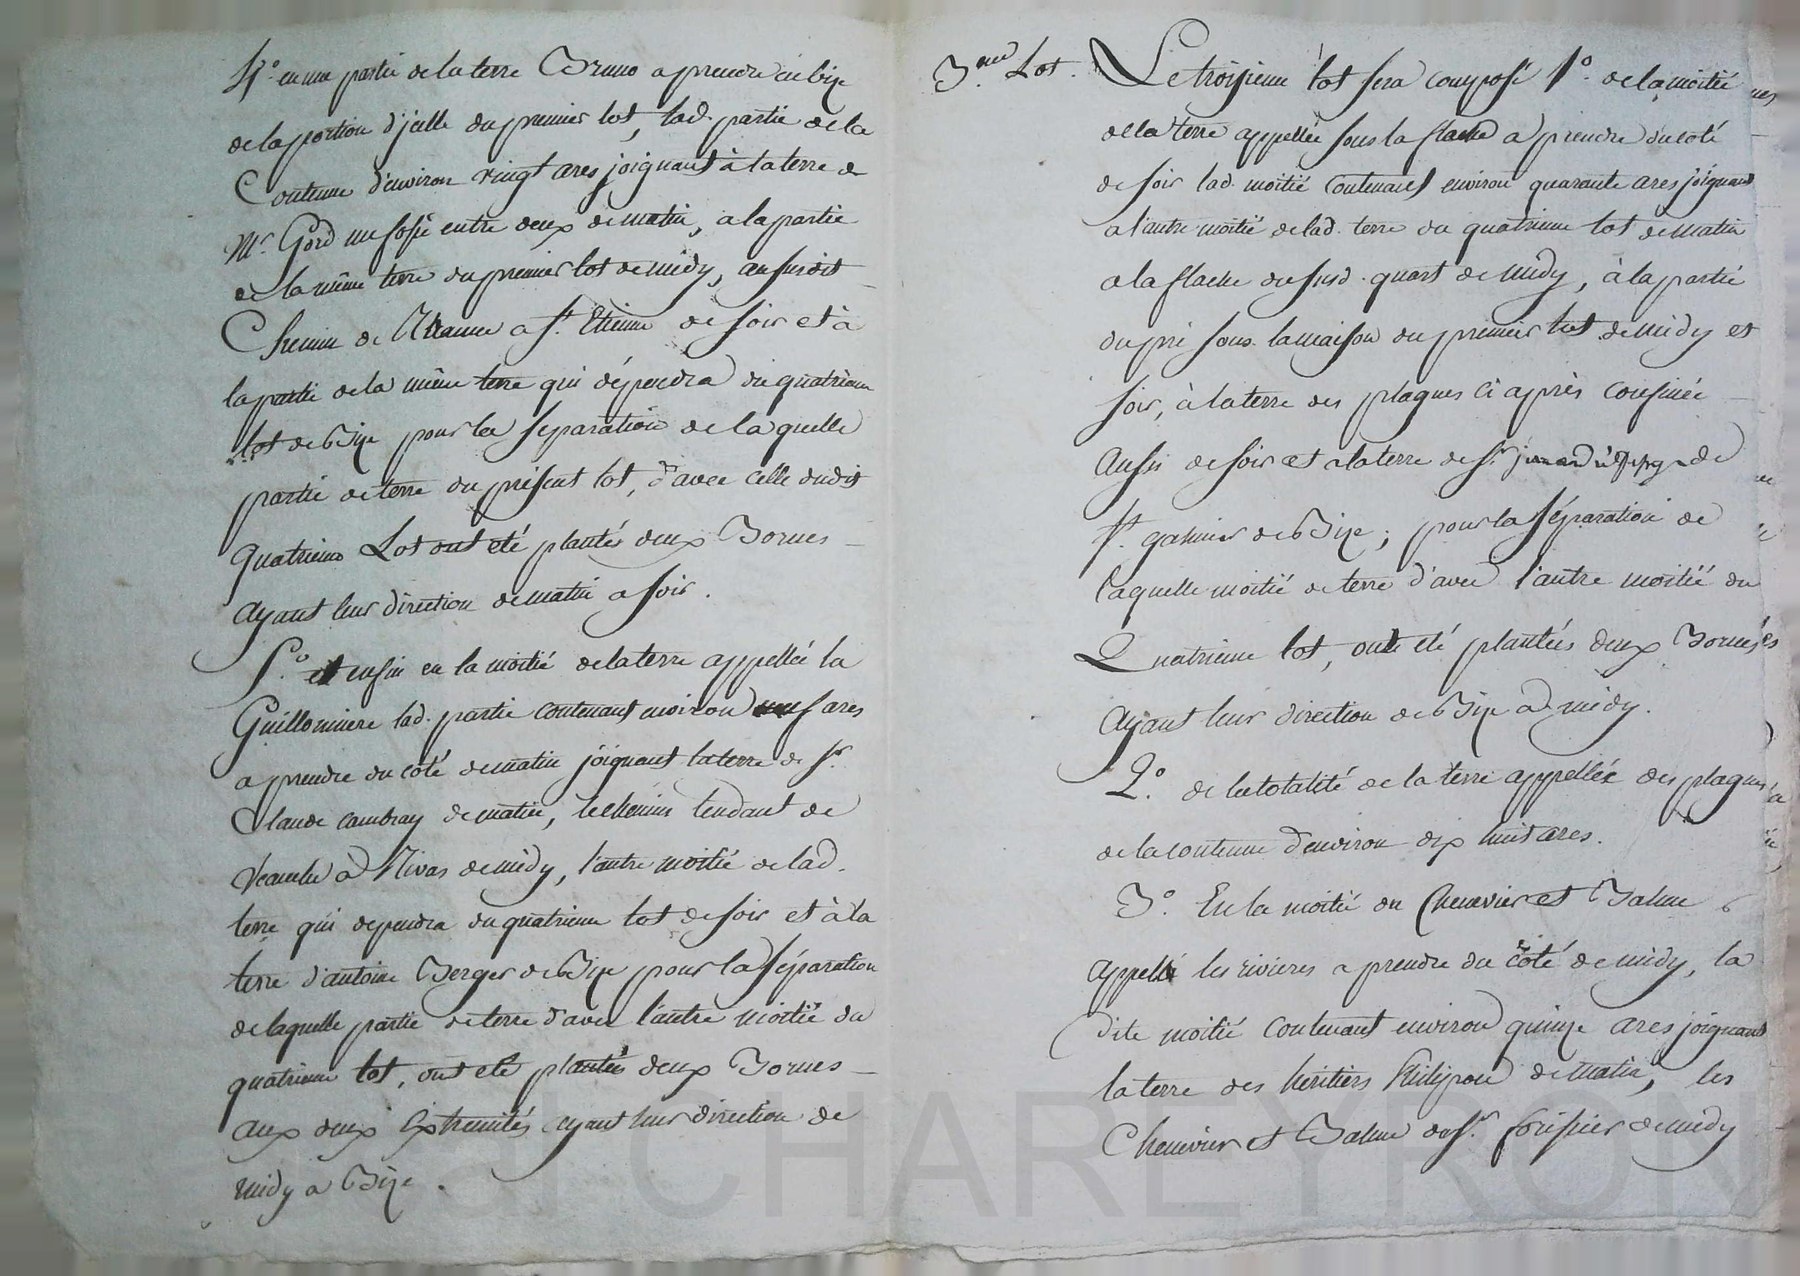 4° en une partie de la terre Bruno a prendre en bize
de la portion d'jcelle du premier lot, lad. partie de la
Contenue d'environ vingt ares joignant à la terre de
Mr. entre deux de matin, a la partie
de la même terre du premier lot de midy, au susdit
Chemin de a St. Etienne de soir et à
la partie de la même terre qui dépendra du quatrieme
lot de Bize pour la separation de la quelle
partie de terre du présent lot, d'avec celle dudit
quatrieme Lot ont eté plantés deux Bornes
ayant leur direction de matin a soir.
5° et enfin en la moitié de la terre appellée la
Guillominiere lad. partie contenant environ neuf ares
a prendre du coté de matin joignant la terre de Sr.
Claude cambray de matin, le chemin tendant de
Veauche à Rivas de midy, l'autre moitié de lad.
terre qui dependra du quatrieme lot de soir et à la
terre d'antoine Berger de Bize pour la séparation
de laquelle partie de terre d'avec l'autre moitié du
quatrieme lot, ont eté plantés deux Bornes
aux deux Extremités ayant leur direction de
midy a Bize.
3eme Lot. Le troisieme lot sera composé 1° de la moitié
de la terre appellée sous la flache a prendre du coté
de soir lad. moitié contenant environ quarante ares joignant
a l'autre moitié de lad. terre du quatrieme lot de matin
a la flache du susd. quart de midy, à la partie
du pré sous la maison du premier lot de midy et
soir, à la terre des plaques ci après confinée
aussi de soir et a la terre de Sr. de
St. galmier de Bize; pour la séparation de
laquelle moitié de terre d'avec l'autre moitié du
Quatrieme lot, ont eté plantées deux Bornes
ayant leur direction de Bize a midy.
2° de la totalité de la terre appellée des plaques
de la contenue d'environ dix huit ares.
3° En la moitié du Chenevier et Balme
appellé les rivieres a prendre du coté de midy, la
dite moitié contenant environ quinze ares joignant
la terre des héritiers Philipon de matin, les
Chenevier et Balme du Sr. de midy
CHAREYRON